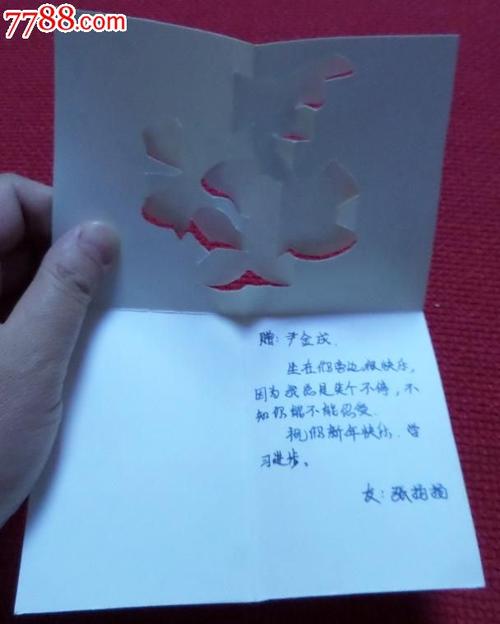 7788.com
赠:尹金成.
坐在你旁边很快乐,
因为我总是笑个不停,不
知你能不能忍受.
祝你新年快乐.学
习进步。
友:张